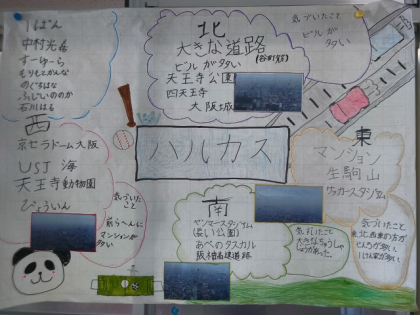 1ぱん
中村光希
すーゅーら
もりもとかんな
のぐちはな
ふじいののか
石川はる
北
大きな道路
(谷町筋)
ビルが多い
天王寺公園
四天王寺
大阪城
気づいたこと
ビルが
多い
西
京セラドーム大阪
USJ 海
天王寺動物園
びょういん
気づいた
こと
前らへんに
マンションが
多い
ハルカス
東
マンション
生駒山
ラガースタジアム
南
ヤンマースタジアム
(長い公園)
あべのタスカル
阪神高速道路
気づいたこと
大きなちゅうしゃ
じょうがあった。
気づいたこと
東、北、西、東の方が
ビルが多い